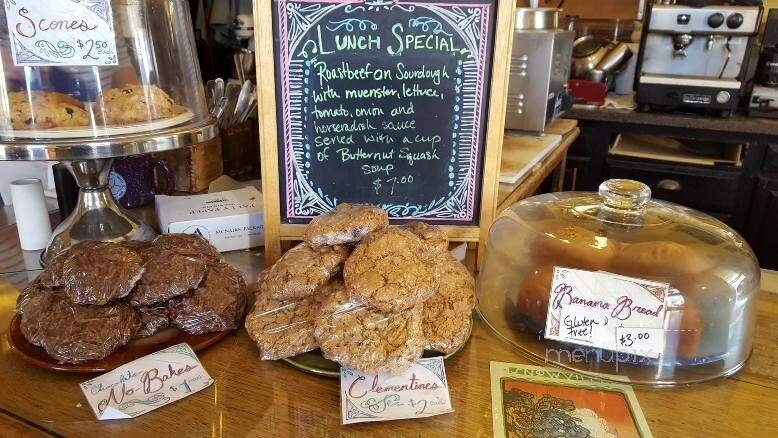 Scones
$2.50
each
LUNCH SPECIAL
Roastbeef on Sourdough
with muenster, lettuce,
tomato, onion and
horseradish sauce
served with a cup
of Butternut Squash
Soup
$7.00
Banana Bread
Gluten
Free!
$3.00
menupix
Chocolate
No Bakes
$1
Clementines
$2 each